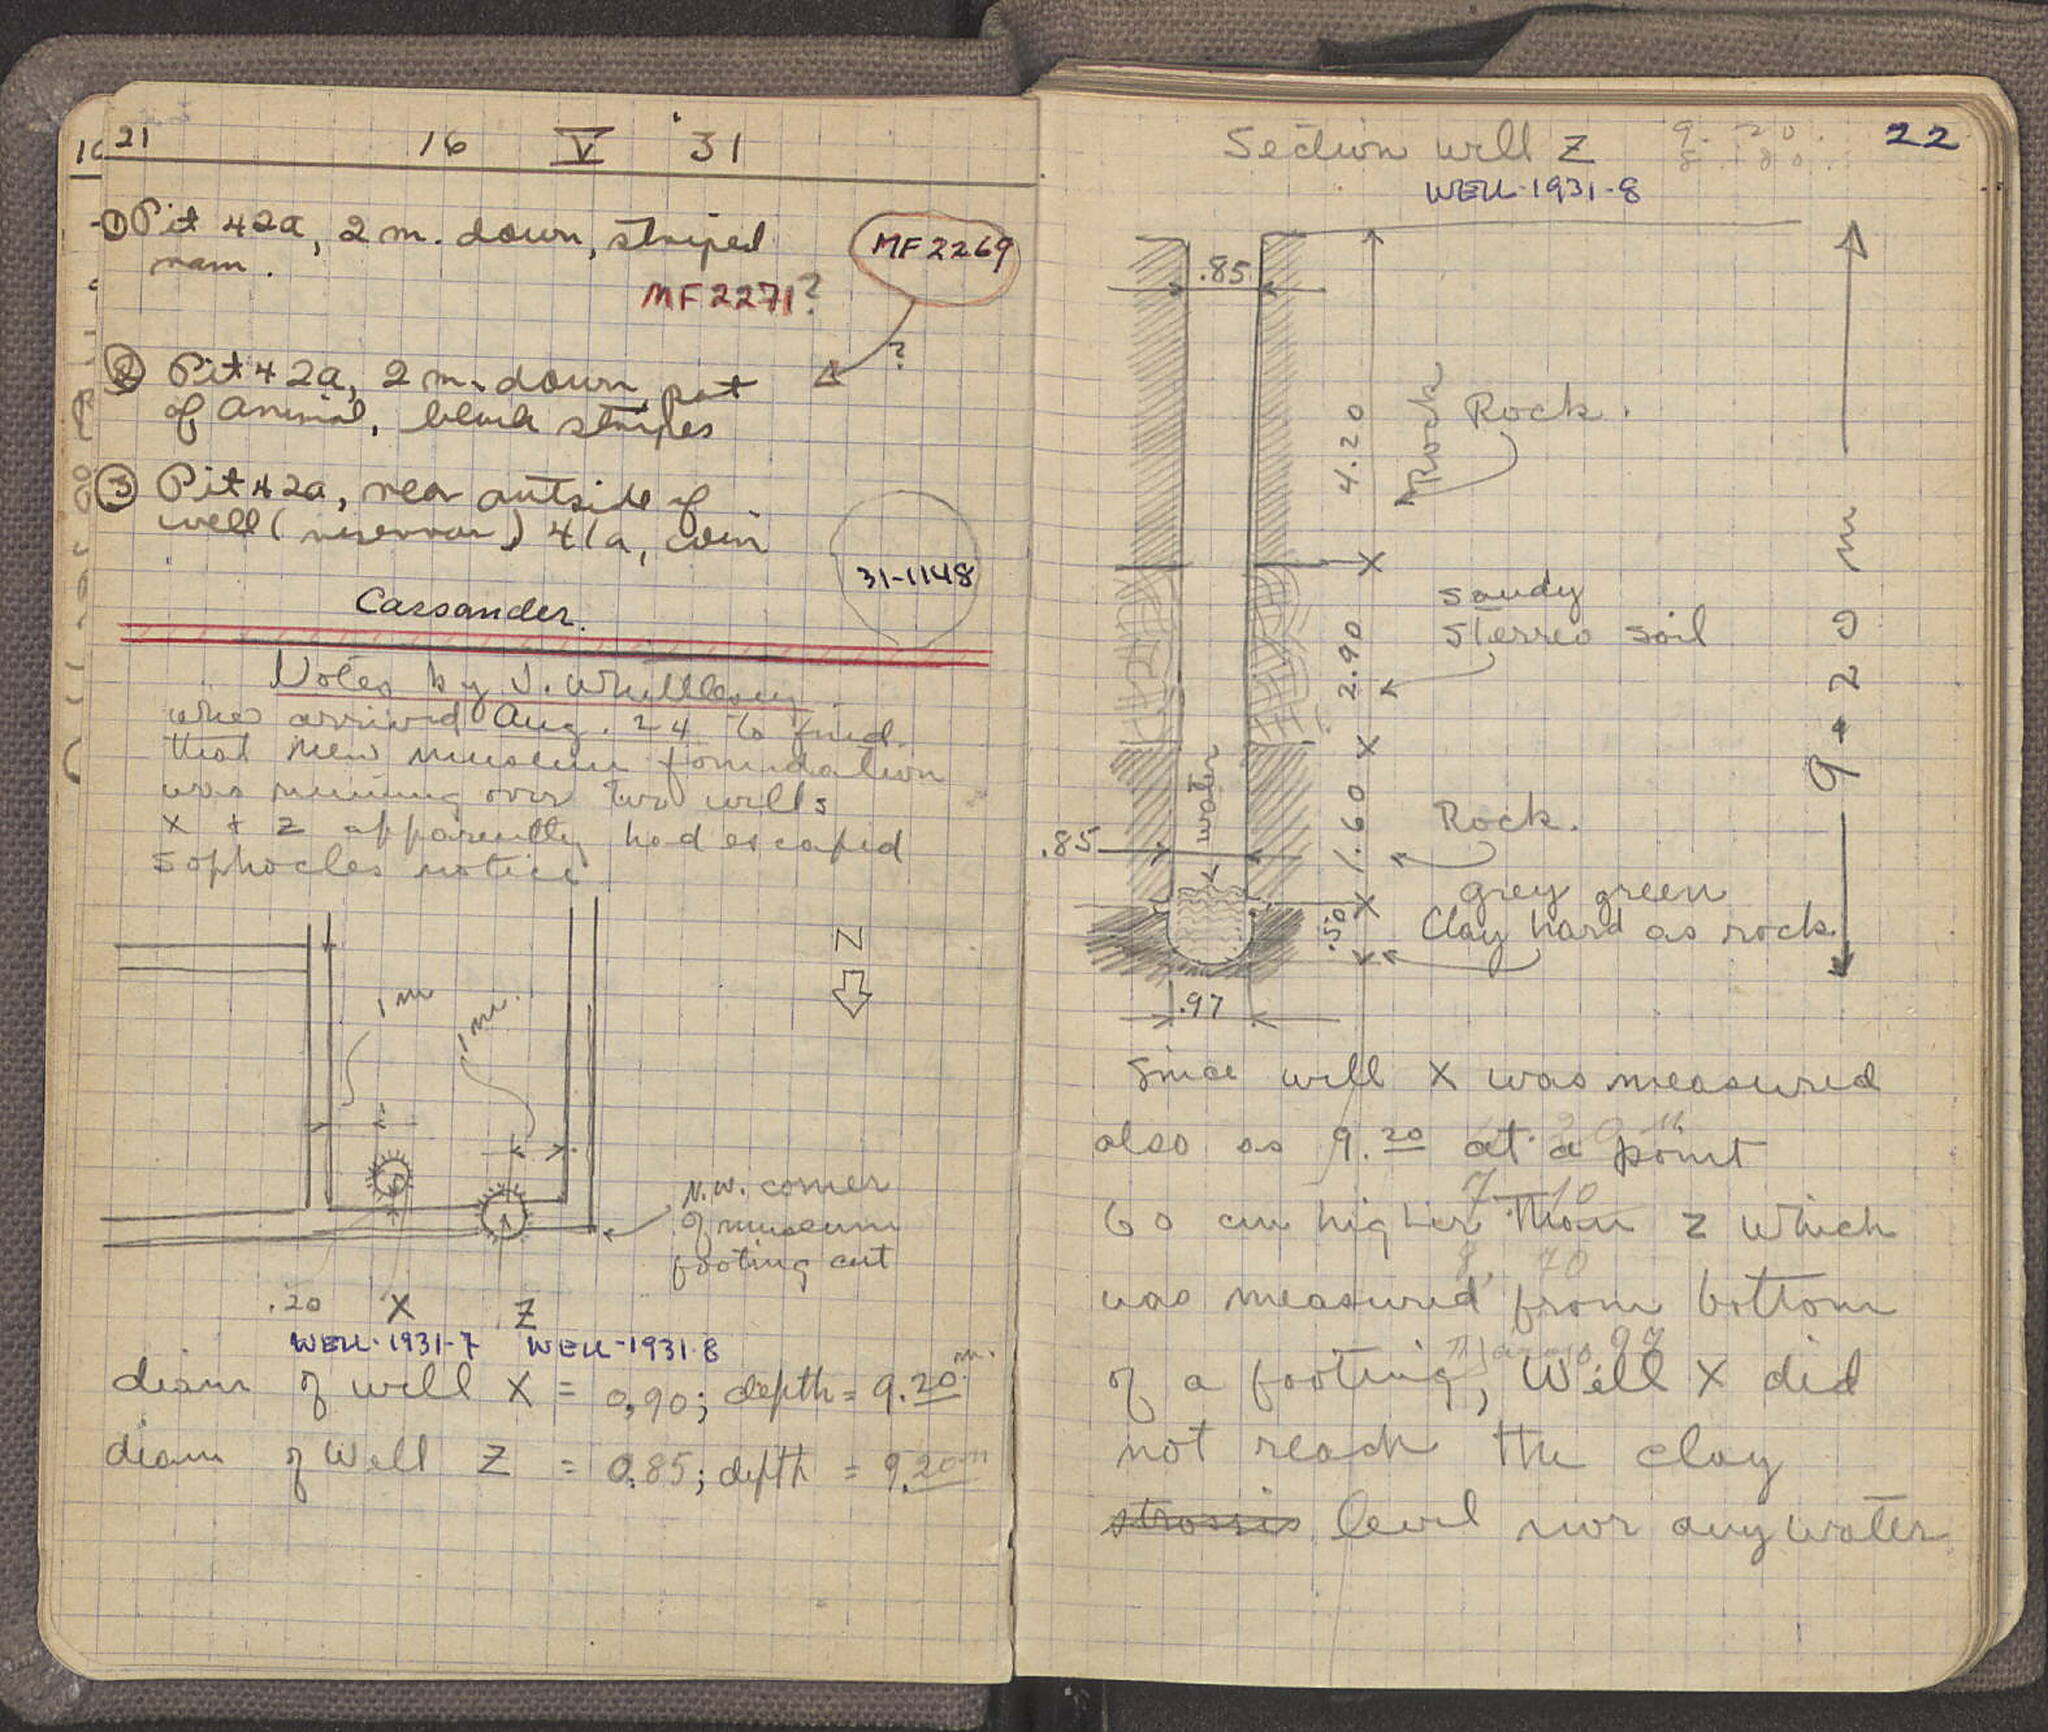 21
16 V 31
① Pit 42a, 2 m. down, striped
ram.
MF 2269
MF 2271?
?
② Pit 42a, 2 m. down, part
of animal, black stripes
③ Pit 42a, near outside of
well (reservoir) 41a, coin
31-1148
Cassander.
Notes by J. Whittlesey
who arrived Aug. 24 to find
that new museum foundation
was running over two wells
X + Z apparently had escaped
Sophocles notice
N
1 m
1 m.
N.W. corner
of museum
footing cut
.20 X Z
WELL-1931-7 WELL-1931-8
diam of well X = 0,90; depth = 9.20 m.
diam of Well Z = 0.85; depth = 9.20 m
22
Section well Z
9.20.
WELL-1931-8
.85
4.20
Rock
Rock.
sandy
stereo soil
2.90
9.20 m
water
1.60
Rock.
.85
grey green
Clay hard as rock.
.50
.97
Since well X was measured
also as 9.20 at a point
60 cm higher than Z which
was measured from bottom
of a footing, Well X did
not reach the clay
level nor any water